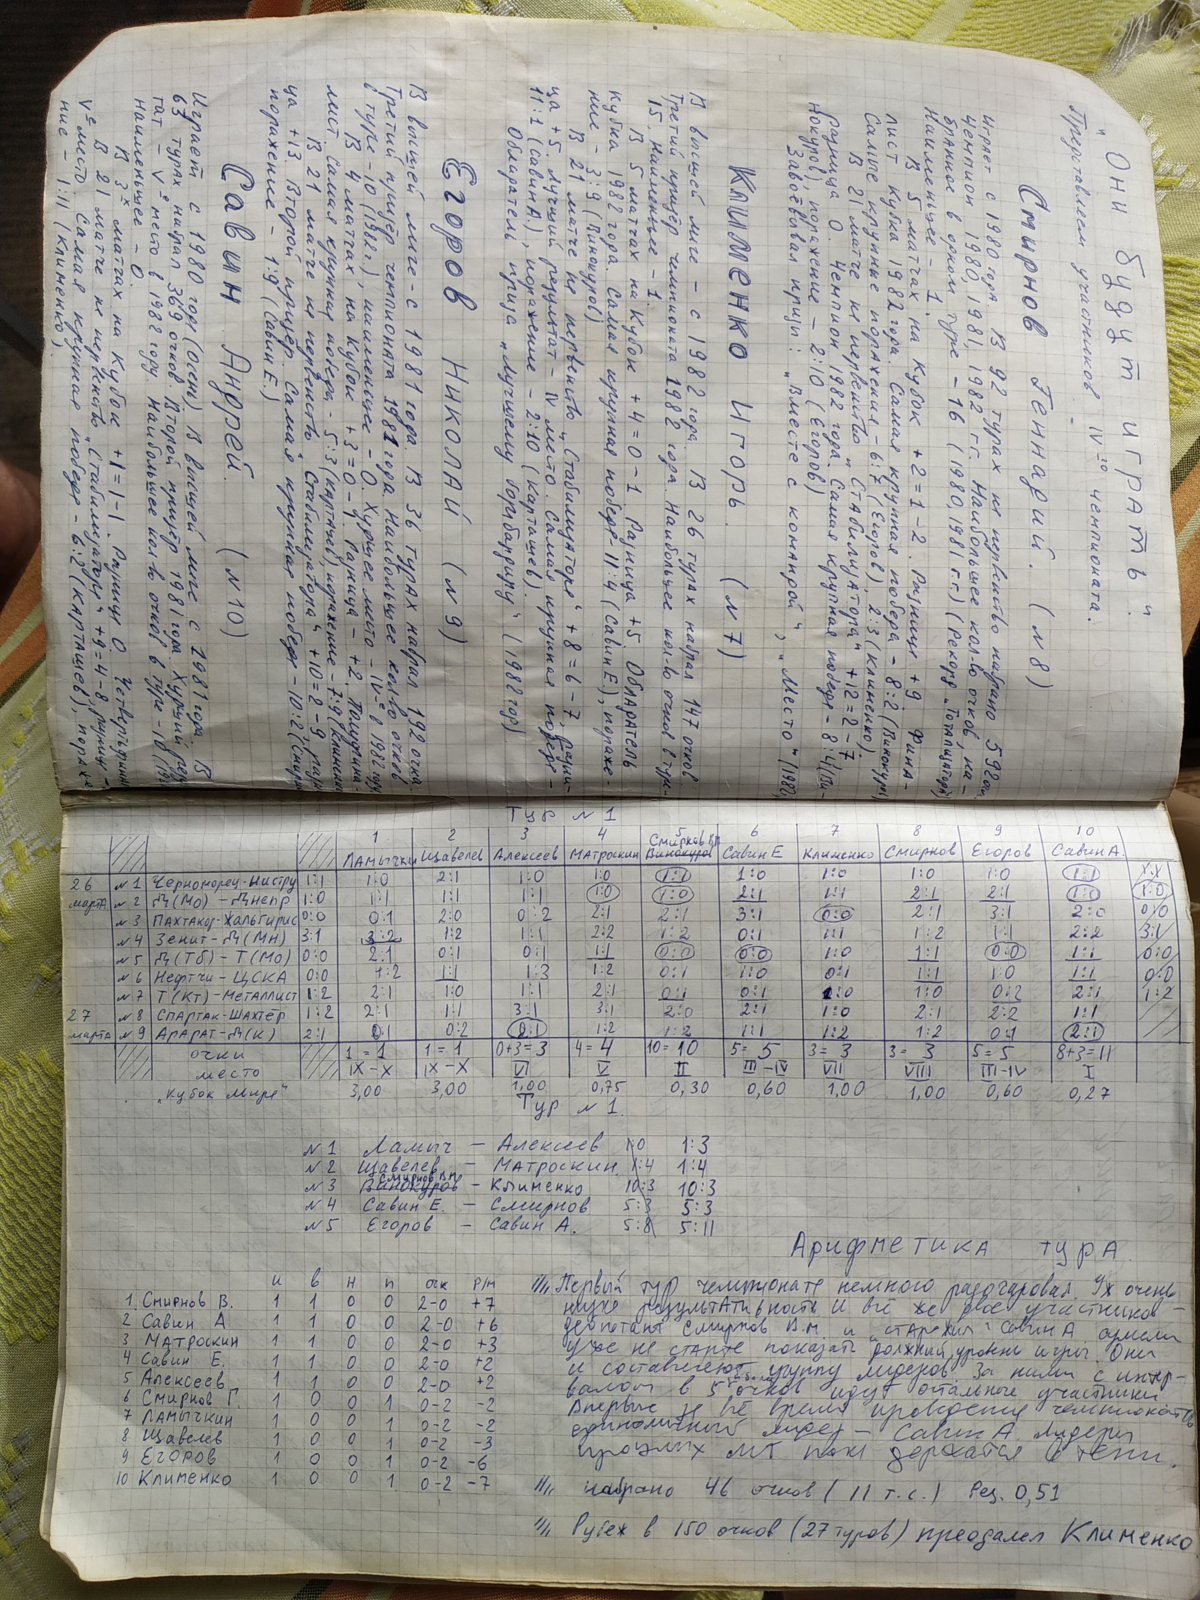 „Они будут играть“.
Представляем участников IV-го чемпионата.
Смирнов Геннадий. (№8)
Играет с 1980 года. В 92 турах на первенство набрано 592 очк.
Чемпион 1980, 1981, 1982 гг. Наибольшее кол-во очков, на-
бранное в одном туре – 16 (1980, 1981 гг.) (Рекорд „Тотализатора“)
Наименьшее – 1.
В 5 матчах на Кубок +2=1-2. Разница +9. Фина-
лист Кубка 1982 года. Самая крупная победа – 8:2 (Винокуров)
Самые крупные поражения – 6:7 (Егоров), 2:3 (Клименко)
В 21 матче на первенство „Стабилизатора“ +12=2-7
Разница 0. Чемпион 1982 года. Самая крупная победа – 8:4 (Ви-
нокуров), поражение – 2:10 (Егоров)
Завоёвывал призы: „Вместе с командой“, „Место“ (1982
Клименко Игорь. (№7)
В высшей лиге – с 1982 года. В 26 турах набрал 147 очков
Третий призёр чемпионата 1982 года. Наибольшее кол-во очков в туре –
15. Наименьшее – 1.
В 5 матчах на Кубок +4=0-1 Разница +5 Обладатель
Кубка 1982 года. Самая крупная победа – 11:4 (Савин Е), пораже-
ние – 3:9 (Винокуров)
В 21 матче на первенство „Стабилизатора“ +8=6-7 Разни-
ца +5. Лучший результат – IV место. Самая крупная победа –
11:1 (Савин А), поражение – 2:10 (Карташев).
Обладатель приза „Лучшему бомбардиру“ (1982 год)
Егоров Николай (№9)
В высшей лиге – с 1981 года. В 36 турах набрал 192 очка
Третий призёр чемпионата 1981 года. Наибольшее кол-во очков
в туре – 10 (1982 г), наименьшее – 0. Худшее место – IV-е в 1982 году
В 4 матчах на Кубок +3=0-1. Разница +2. Полуфина-
лист. Самая крупная победа – 5:3 (Карташев), поражение – 7:9 (Клименко
В 21 матче на первенство „Стабилизатора“ +10=2-9 разни-
ца +13 Второй призёр. Самая крупная победа – 10:2 (Смирн
поражение – 1:9 (Савин Е.)
Савин Андрей. (№10)
Играет с 1980 года (осень). В высшей лиге с 1981 года. В
63 турах набрал 369 очков Второй призёр 1981 года. Худший резуль-
тат – V-е место в 1982 году. Наибольшее кол-во очков в туре – 16 (19
наименьшее – 0.
В 3х матчах на Кубке +1=1-1. Разница 0. Четвертьфина
В 21 матче на первенство „Стабилизатора“ +9=4-8, разниц –
V-е место. Самая крупная победа – 6:2 (Карташев), пораже-
ние – 1:11 (Клименко).
Тур №1
1 2 3 4 5 6 7 8 9 10
Ламычкин Щавелев Алексеев Матроскин Смирнов В.М. Винокуров Савин Е Клименко Смирнов Егоров Савин А.
26 №1 Черноморец-Нистру 1:1 1:0 2:1 1:0 1:0 1:1 1:0 1:0 1:0 1:0 1:1 1:1
марта №2 Д(Мо) – Днепр 1:0 1:1 1:1 1:1 1:0 1:0 2:1 1:1 2:1 2:1 1:0 1:0
№3 Пахтакор-Жальгирис 0:0 0:1 2:0 0:2 2:1 2:1 3:1 0:0 2:1 3:1 2:0 0:0
№4 Зенит-Д(Мн) 3:1 3:2 1:2 1:1 2:2 1:2 0:1 1:1 1:2 1:1 2:2 3:1
№5 Д(Тб) – Т(Мо) 0:0 2:1 0:1 0:1 1:1 0:0 0:0 1:0 1:1 0:0 1:1 0:0
№6 Нефтчи – ЦСКА 0:0 1:2 1:1 1:3 1:2 0:1 1:0 0:1 1:1 1:0 1:1 0:0
№7 Т(Кт)-Металлист 1:2 2:1 1:0 1:1 2:1 0:1 0:1 1:0 1:0 0:2 2:1 1:2
27 №8 Спартак-Шахтёр 1:2 2:1 1:1 3:1 3:1 2:0 2:1 1:0 2:1 2:2 1:1
марта №9 Арарат-Д(К) 2:1 0:1 0:2 0:1 1:2 1:2 1:1 1:2 1:2 0:1 2:1
очки 1=1 1=1 0+3=3 4=4 10=10 5=5 3=3 3=3 5=5 8+3=11
место IX-X IX-X VI V II III-IV VII VIII III-IV I
„Кубок мира“ 3,00 3,00 1,00 0,75 0,30 0,60 1,00 1,00 0,60 0,27
Тур №1.
№1 Ламыч – Алексеев 1:0 1:3
№2 Щавелев – Матроскин 1:4 1:4
№3 Винокуров Смирнов В.М. – Клименко 10:3 10:3
№4 Савин Е. – Смирнов 5:3 5:3
№5 Егоров – Савин А. 5:8 5:11
Арифметика тура.
и в н п очк р/м
1 Смирнов В. 1 1 0 0 2-0 +7
2 Савин А 1 1 0 0 2-0 +6
3 Матроскин 1 1 0 0 2-0 +3
4 Савин Е. 1 1 0 0 2-0 +2
5 Алексеев 1 1 0 0 2-0 +2
6 Смирнов Г. 1 0 0 1 0-2 -2
7 Ламычкин 1 0 0 1 0-2 -2
8 Щавелев 1 0 0 1 0-2 -3
9 Егоров 1 0 0 1 0-2 -6
10 Клименко 1 0 0 1 0-2 -7
Первый тур чемпионата немного разочаровал. Ух очень
низка результативность И все же двое участников –
дебютант Смирнов В.М. и „старожил“ Савин А сумели
уже на старте показать должный уровень игры. Они
и составляют группу лидеров. За ними с интер-
валом в 5 очков идут остальные участники
Впервые за всё время проведения чемпионатов
единоличный лидер – Савин А. Лидеры
прошлых лет пока держатся в тени.
набрано 46 очков (11 т.с.) Рез. 0,51
Рубеж в 150 очков (27 туров) преодолел Клименко